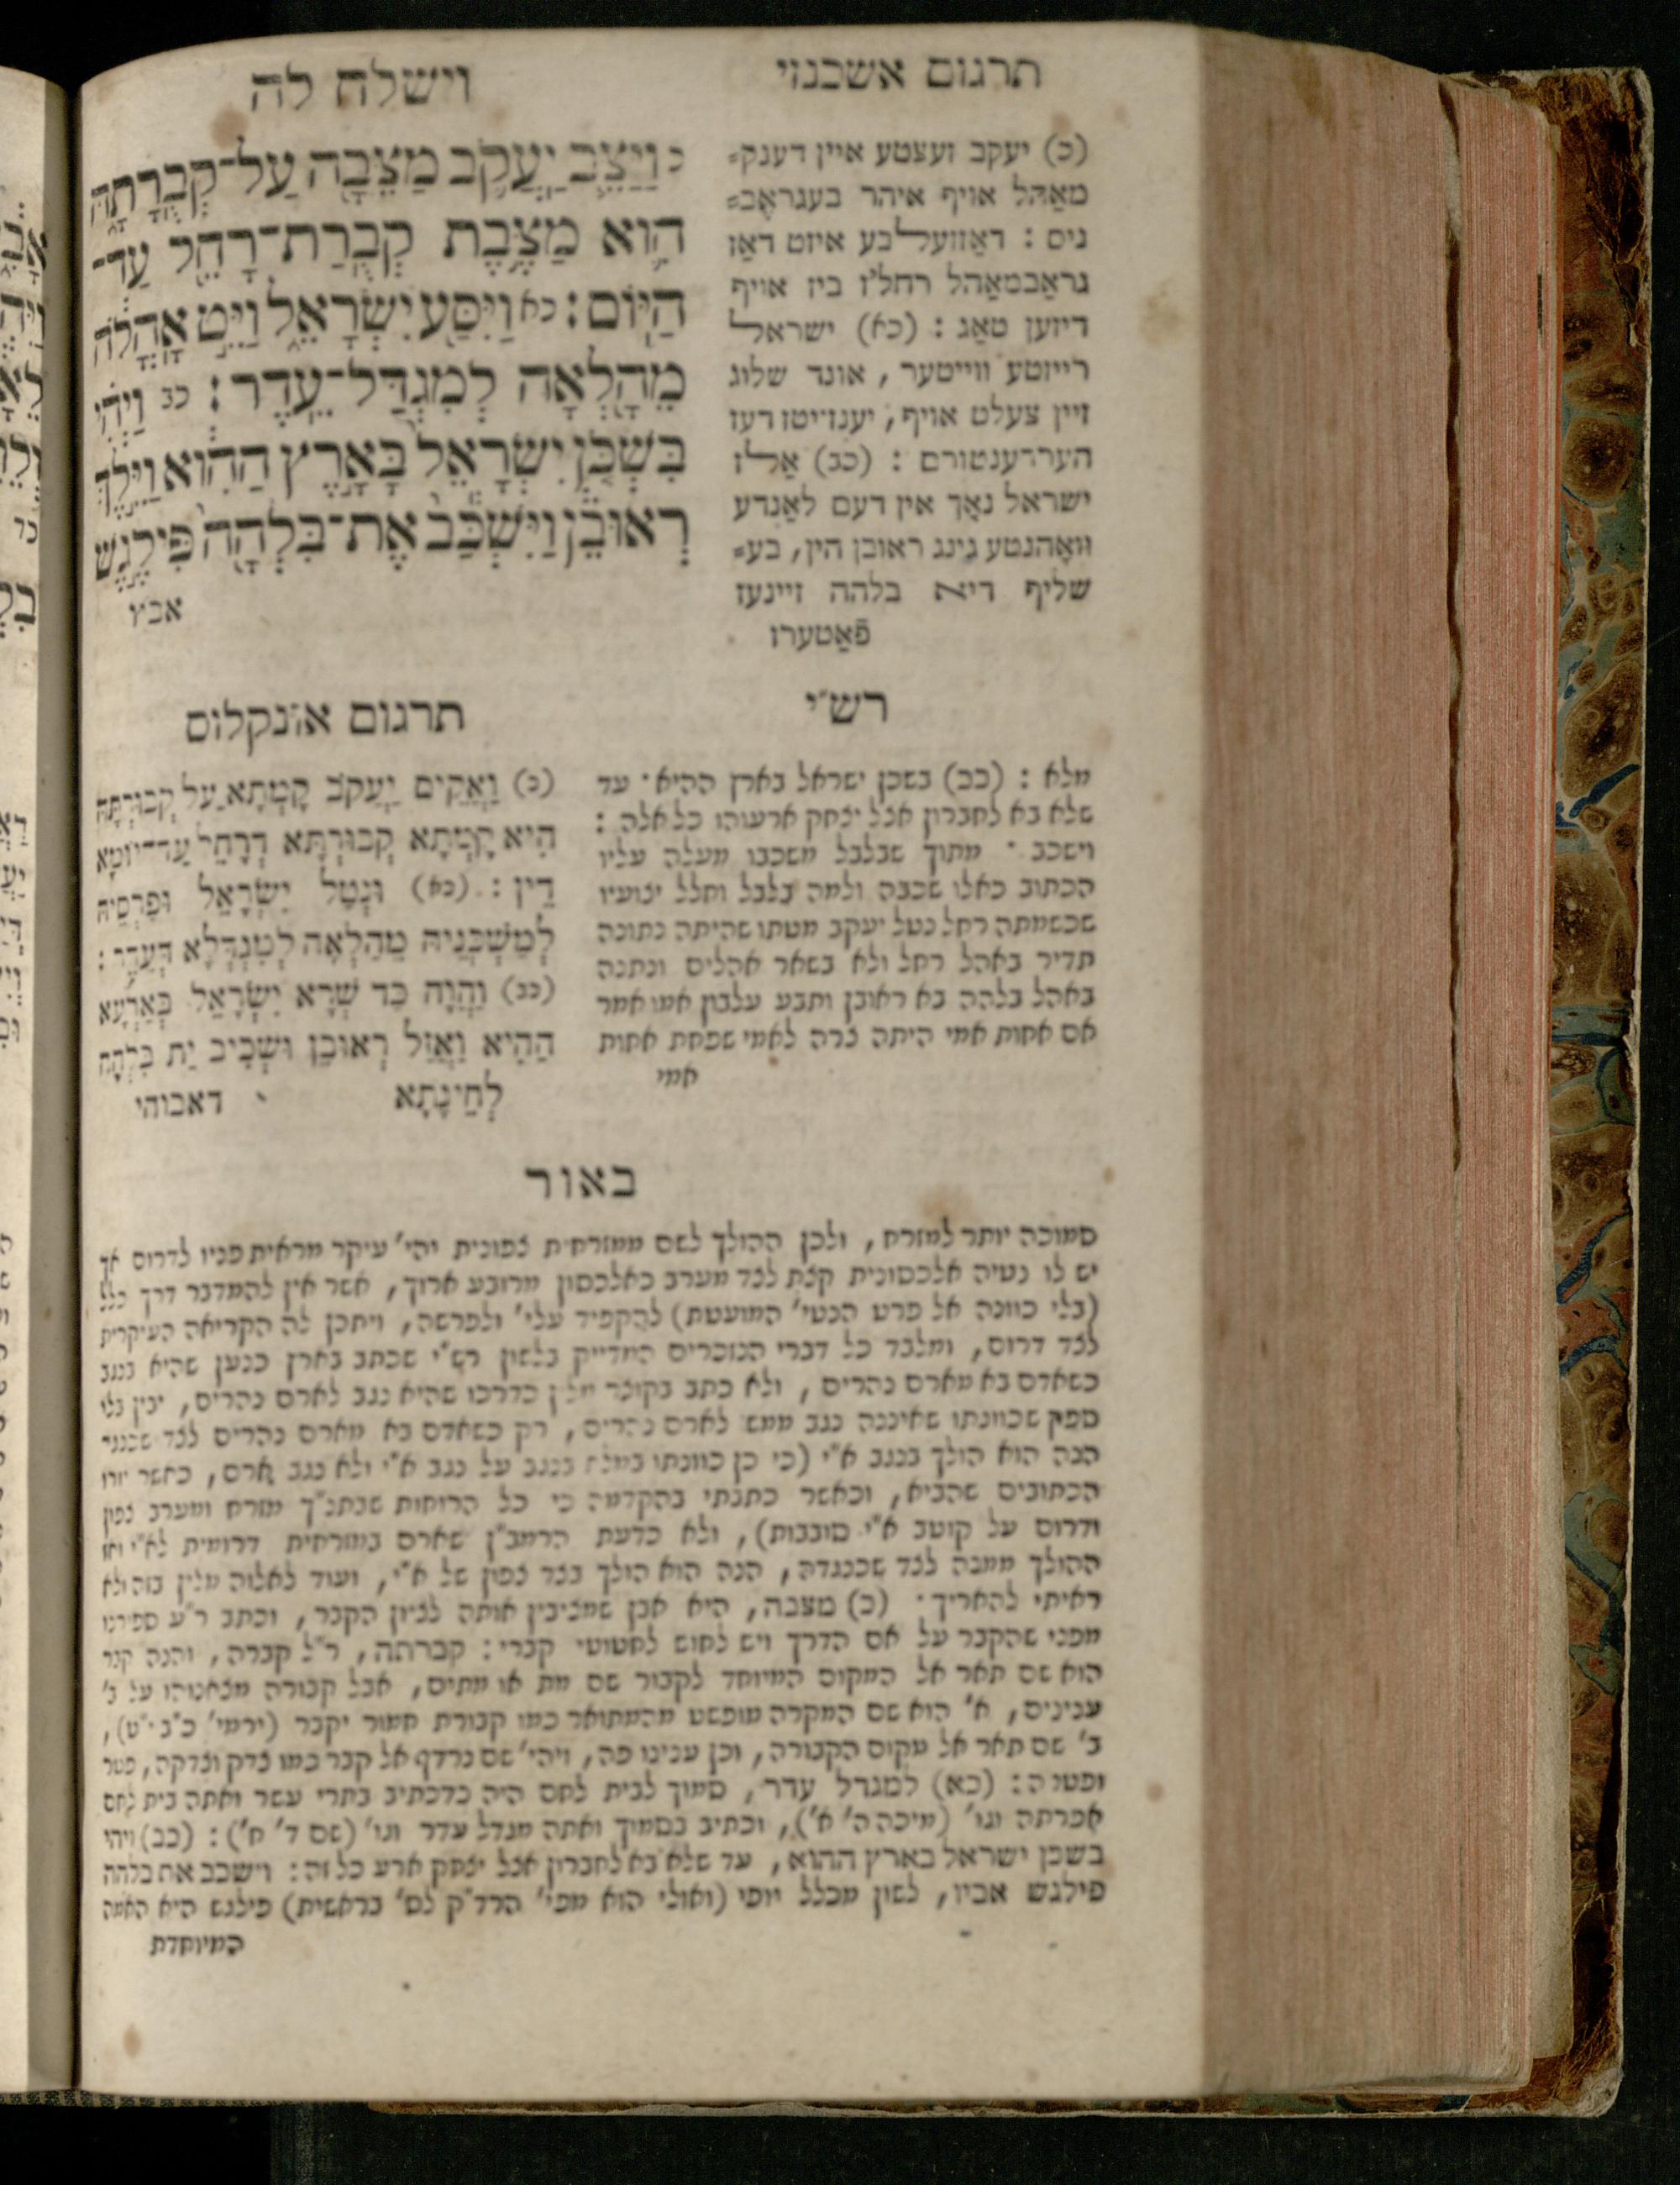 תרגום אשכנזי
וישלח לה
(כ) יעקב זעצטע איין דענק=
מאַהל אויף איהר בעגראֶב=
ניס : דאַזזעלבע איזט דאַז
גראַבמאַהל רחל'ז ביז אויף
דיזען טאַג : (כא) ישראל
רייזטע ווייטער, אונד שלוג
זיין צעלט אויף, יענזייטז דעז
הערדענטורם : (כב) אַלז
ישראל נאָך אין דעם לאַנדע
וואָהנטע גינג ראובן הין, בע=
שליף דיא בלהה זיינעז
פֿאַטערז
כ וַיַּצֵּב יַעֲקֹב מַצֵּבָה עַל־קְבֻרָתָהּ
הִוא מַצֶּבֶת קְבֻרַת־רָחֵל עַד־
הַיּוֹם : כא וַיִּסַּע יִשְׂרָאֵל וַיֵּט אָהֳלֹה
מֵהָלְאָה לְמִגְדַּל־עֵדֶר : כב וַיְהִי
בִּשְׁכֹּן יִשְׂרָאֵל בָּאָרֶץ הַהִוא וַיֵּלֶךְ
רְאוּבֵן וַיִּשְׁכַּב אֶת־בִּלְהָה פִּילֶגֶשׁ
אביו
רש״י
מלא : (כב) בשכן ישראל בארץ ההיא · עד
שלא בא לחברון אצל יצחק ארעוהו כל אלה :
וישכב · מתוך שבלבל משכבו מעלה עליו
הכתוב כאלו שכבה ולמה בלבל וחלל יצועיו
שכשמתה רחל נטל יעקב מטתו שהיתה נתונה
תדיר באהל רחל ולא בשאר אהלים ונתנה
באהל בלהה בא ראובן ותבע עלבון אמו אמר
אם אחות אמי היתה צרה לאמי שפחת אחות
אמי
תרגום אונקלוס
(כ) וַאֲקֵים יַעֲקֹב קָמְתָא עַל קְבוּרְתַּהּ
הִיא קָמְתָא קְבוּרְתָּא דְרָחֵל עַד־יוֹמָא
דֵין : (כא) וּנְטַל יִשְׂרָאֵל וּפְרְסֵיהּ
לְמַשְׁכְּנֵיהּ מֵהַלְאָה לְמִגְדְּלָא דְעֵדֶר :
(כב) וַהֲוָה כַּד שְׁרָא יִשְׂרָאֵל בְּאַרְעָא
הַהִיא וַאֲזַל רְאוּבֵן וּשְׁכִיב יַת בִּלְהָה
לְחֵינָתָא דאבוהי
באור
סמוכה יותר למזרח, ולכן ההולך לשם ממזרחית צפונית יהי׳ עיקר מראית פניו לדרום אך
יש לו נטיה אלכסונית קצת לצד מערב כאלכסון מרובע ארוך, אשר אין להמדבר דרך כלל
(בלי כוונה אל פרט הנטי׳ המועטת) להקפיד עלי׳ ולפרשה, ויתכן לה הקריאה העיקרית
לצד דרום, ומלבד כל דברי הנזכרים המדייק בלשון רש״י שכתב בארץ כנען שהיא בנגב
כשאדם בא מארם נהרים, ולא כתב בקוצר כדרכו שהיא נגב לארם נהרים, יבין בלי
ספק שכוונתו שאיננה נגב ממש לארם נהרים, רק כשאדם בא מארם נהרים לצד שכנגד
הנה הוא הולך בנגב א״י (כי כן כוונתו במלת בנגב על נגב א״י ולא נגב ארם, כאשר יורו
הכתובים שהביא, וכאשר כתבתי בהקדמה כי כל הרוחות שבתנ״ך מזרח ומערב צפון
ודרום על קוטב א״י סובבות), ולא כדעת הרמב״ן שארם במזרחית דרומית לא״י ואז
ההולך ממנה לצד שכנגדה, הנה הוא הולך בצד צפון של א״י, ועוד לאלוה מלין בזה ולא
ראיתי להאריך · (כ) מצבה, היא אבן שמציבין אותה לציון הקבר, וכתב ר״ע ספורנו
מפני שהקבר על אם הדרך ויש לחוש לחטוטי קברי : קברתה, ר״ל קברה, והנה קבר
הוא שם תאר אל המקום המיוחד לקבור שם מת או מתים, אבל קבורה מצאנוהו על ב׳
ענינים, א׳ הוא שם המקרה מופשט מהמתואר כמו קבורת חמור יקבר (ירמי׳ כ״ב י״ט),
ב׳ שם תאר אל מקום הקבורה, וכן ענינו פה, ויהי׳ שם נרדף אל קבר כמו צדק וצדקה, פטר
ופטרה : (כא) למגדל עדר, סמוך לבית לחם היה כדכתיב בתרי עשר ואתה בית לחם
אפרתה וגו׳ (מיכה ה׳ א׳), וכתיב בסמוך ואתה מגדל עדר וגו׳ (שם ד׳ ח׳) : (כב) ויהי
בשכן ישראל בארץ ההוא, עד שלא בא לחברון אצל יצחק ארע כל זה : וישכב את בלהה
פילגש אביו, לשון מכלל יופי (ואולי הוא מפי׳ הרד״ק לס׳ בראשית) פילגש היא האמה
המיוחדת